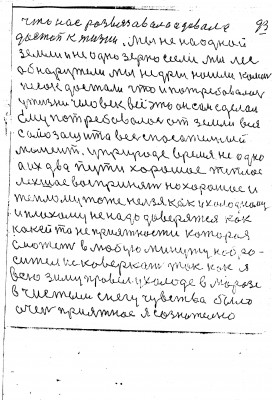 что нас развязавало и давало 93
достой к жизни. Мы не на одной
земли и не одно зерно сеели мы лес
обнаружили мы недры нашли камен
уголе достали что и потребовалос
у жизни человек всё это он сам сделал
Ему потребовалос от земли вся
самозащита все спасателный
момент. у природе время не одно
а их два пути хорошое теплое
легшае воспринят но хорошое и
теплому тоже нелзя как и холодному
и плохому не надо доверятся как
какей то не приятности которая
сможет в любую минуту на его
сител исковеркат так как я
всю зиму провел у холоде в морозе
в чистым снегу чувства было
очен приятное я сознателно